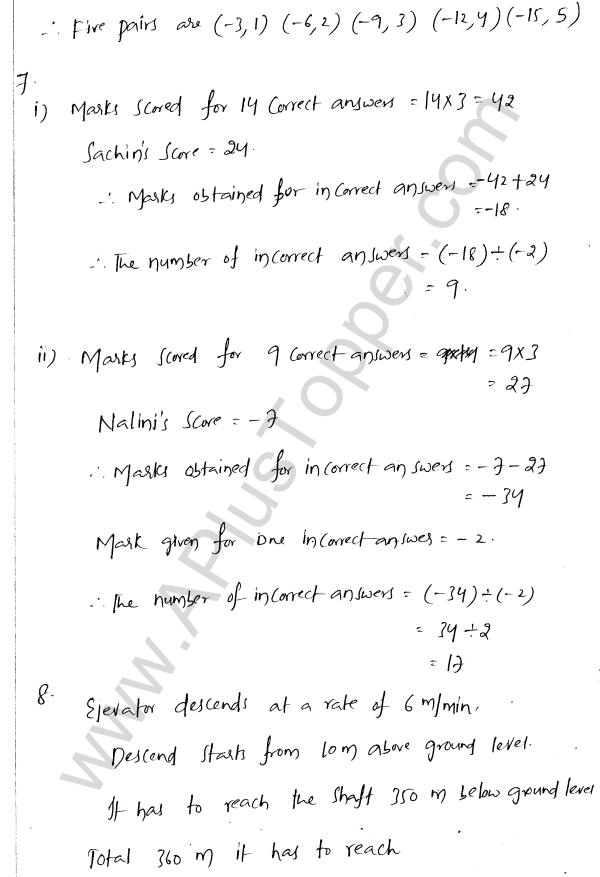 ∴ Five pairs are (-3,1) (-6,2) (-9, 3) (-12,4) (-15, 5)
7.
i) Marks scored for 14 correct answers = 14×3 = 42
Sachin's score = 24.
∴ Marks obtained for incorrect answers = -42+24
= -18.
∴ The number of incorrect answers = (-18)÷(-2)
= 9.
ii) Marks scored for 9 correct answers = = 9×3
= 27
Nalini's score = -7
∴ Marks obtained for incorrect answers = -7-27
= -34
Mark given for one incorrect answes = -2.
∴ The number of incorrect answers = (-34)÷(-2)
= 34÷2
= 17
8. Elevator descends at a rate of 6 m/min.
Descend starts from 10m above ground level.
It has to reach the shaft 350 m below ground level
Total 360 m it has to reach
www.APlusTopper.com